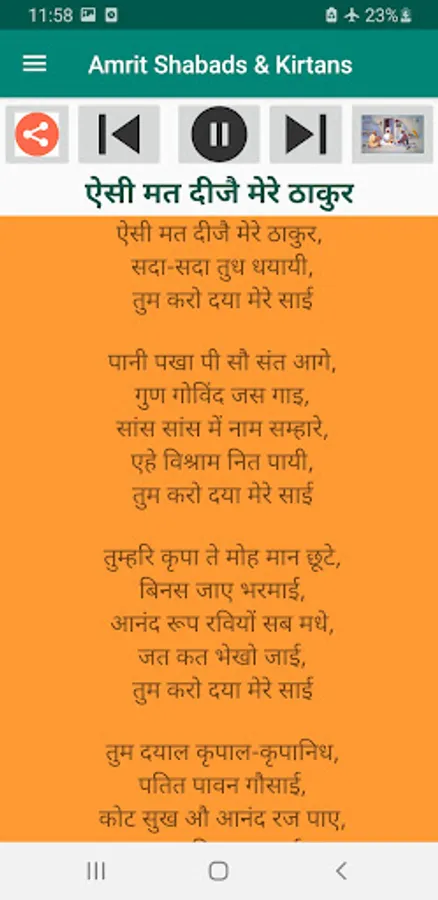 11:58
23%
Amrit Shabads & Kirtans
ऐसी मत दीजै मेरे ठाकुर
ऐसी मत दीजै मेरे ठाकुर,
सदा-सदा तुध धयायी,
तुम करो दया मेरे साई
पानी पखा पी सौ संत आगे,
गुण गोविंद जस गाइ,
सांस सांस में नाम सम्हारे,
एहे विश्राम नित पायी,
तुम करो दया मेरे साई
तुम्हरि कृपा ते मोह मान छूटे,
बिनस जाए भरमाई,
आनंद रूप रवियों सब मधे,
जत कत भेखो जाई,
तुम करो दया मेरे साई
तुम दयाल कृपाल-कृपानिध,
पतित पावन गौसाई,
कोट सुख औ आनंद रज पाए,